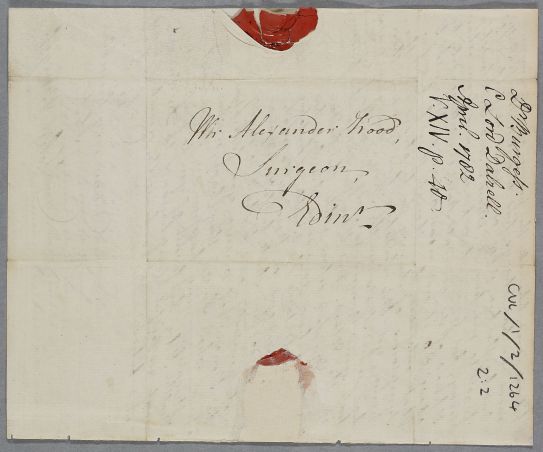 Mr Alexander Wood,
Surgeon,
Edinr.
Dr Burges.
C Lord Dalzell.
April 1782
V. XIV. p. 40
CUL/1/2/1264
2:2